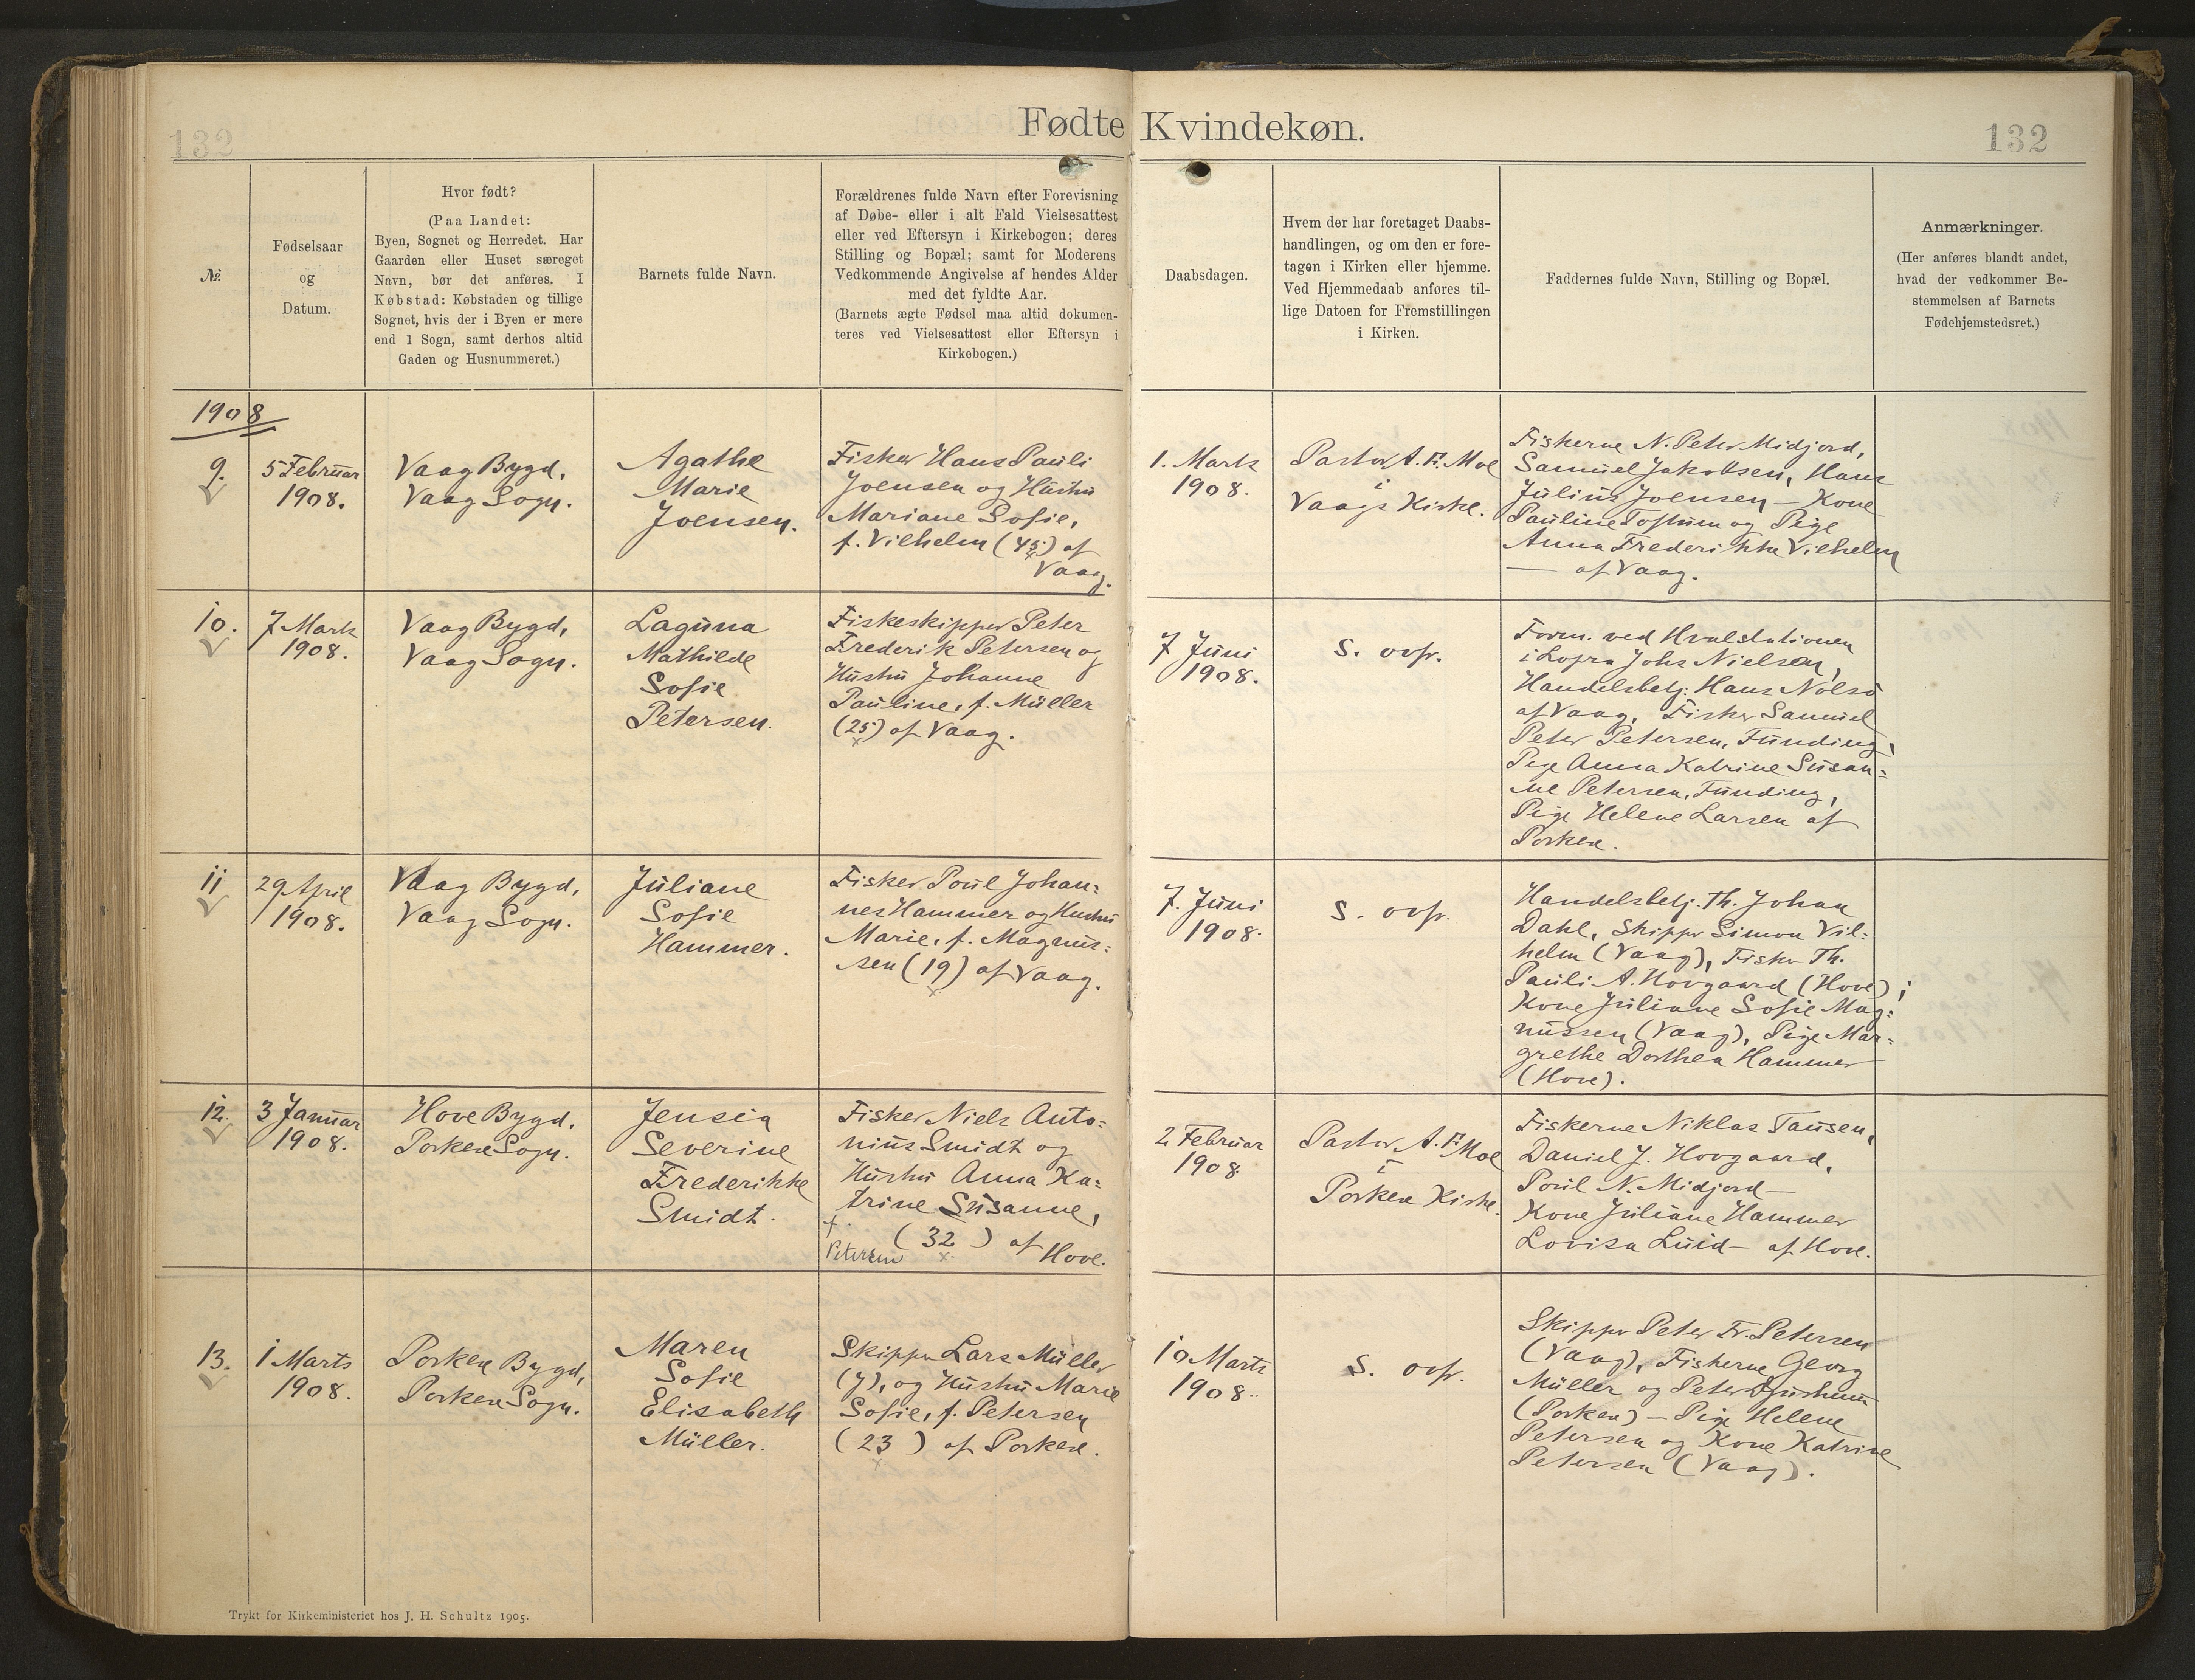 132
Fødte Kvindekøn.
132
№.
Fødselsaar
og
Datum.
Hvor født?
(Paa Landet:
Byen, Sognet og Herredet. Har
Gaarden eller Huset særeget
Navn, bør det anføres. I
Købstad: Købstaden og tillige
Sognet, hvis der i Byen er mere
end 1 Sogn, samt derhos altid
Gaden og Husnummeret.)
Barnets fulde Navn.
Forældrenes fulde Navn efter Forevisning
af Døbe- eller i alt Fald Vielsesattest
eller ved Eftersyn i Kirkebogen; deres
Stilling og Bopæl; samt for Moderens
Vedkommende Angivelse af hendes Alder
med det fyldte Aar.
(Barnets ægte Fødsel maa altid dokumen-
teres ved Vielsesattest eller Eftersyn i
Kirkebogen.)
Daabsdagen.
Hvem der har foretaget Daabs-
handlingen, og om den er fore-
tagen i Kirken eller hjemme.
Ved Hjemmedaab anføres til-
lige Datoen for Fremstillingen
i Kirken.
Faddernes fulde Navn, Stilling og Bopæl.
Anmærkninger.
(Her anføres blandt andet,
hvad der vedkommer Be-
stemmelsen af Barnets
Fødehjemstedsret.)
1908
9.
5 Februar
1908.
Vaag Bygd,
Vaag Sogn.
Agathe
Marie
Joensen.
Fisker Hans Pauli
Joensen og Hustru
Mariane Sofie,
f. Vilhelm (45) af
Vaag.
1. Marts
1908.
Pastor A. F. Moe
i
Vaags Kirke.
Fiskerne N. Peter Midjord,
Samuel Jakobsen, Hans
Julius Joensen – Kone
Pauline Toftum og Pige
Anna Frederikke Vilhelm
— af Vaag.
10.
7 Marts
1908.
Vaag Bygd,
Vaag Sogn.
Laguna
Mathilde
Sofie
Petersen.
Fiskeskipper Peter
Frederik Petersen og
Hustru Johanne
Pauline, f. Müller
(25) af Vaag.
7 Juni
1908.
S. ovfr.
Form. ved Hvalstationen
i Lopra Johs Nielsen,
Handelsbetj. Hans Nolsø
af Vaag, Fisker Samuel
Peter Petersen, Funding,
Pige Anna Katrine Susan=
ne Petersen, Funding,
Pige Helene Larsen af
Porkere.
11
29 April
1908.
Vaag Bygd,
Vaag Sogn.
Juliane
Sofie
Hammer.
Fisker Poul Johan=
nes Hammer og Hustru
Marie, f. Magnus-
sen (19) af Vaag.
7. Juni
1908.
S. ovfr.
Handelsbetj. Th. Johan
Dahl, Skipper Simon Vil=
helm (Vaag), Fisker Th.
Pauli A. Hovgaard (Hove);
Kone Juliane Sofie Mag=
nussen (Vaag), Pige Mar=
grethe Dorthea Hammer
(Hove).
12.
3 Januar
1908.
Hove Bygd.
Porkere Sogn.
Jensia
Severine
Frederikke
Smidt.
Fisker Niels Anto=
nius Smidt og
Hustru Anna Ka=
trine Susanne,
f.
Petersen (32) af Hove.
2 Februar
1908
Pastor A. F. Moe
i
Porkere Kirke.
Fiskerne Niklas Tausen,
Daniel J. Hovgaard,
Poul N. Midjord –
Kone Juliane Hammer
Lovisa Luid – af Hove.
13.
1 Marts
1908.
Porkere Bygd,
Porkere Sogn.
Maren
Sofie
Elisabeth
Müller.
Skipper Lars Müller
og Hustru Marie
Sofie, f. Petersen
(23) af Porkere.
10 Marts
1908.
S. ovfr.
Skipper Peter Fr. Petersen
(Vaag), Fiskerne Georg
Müller og Peter
(Porkere) – Pige Helene
Petersen og Kone Katrine
Petersen (Vaag).
Trykt for Kirkeministeriet hos J. H. Schultz 1905.